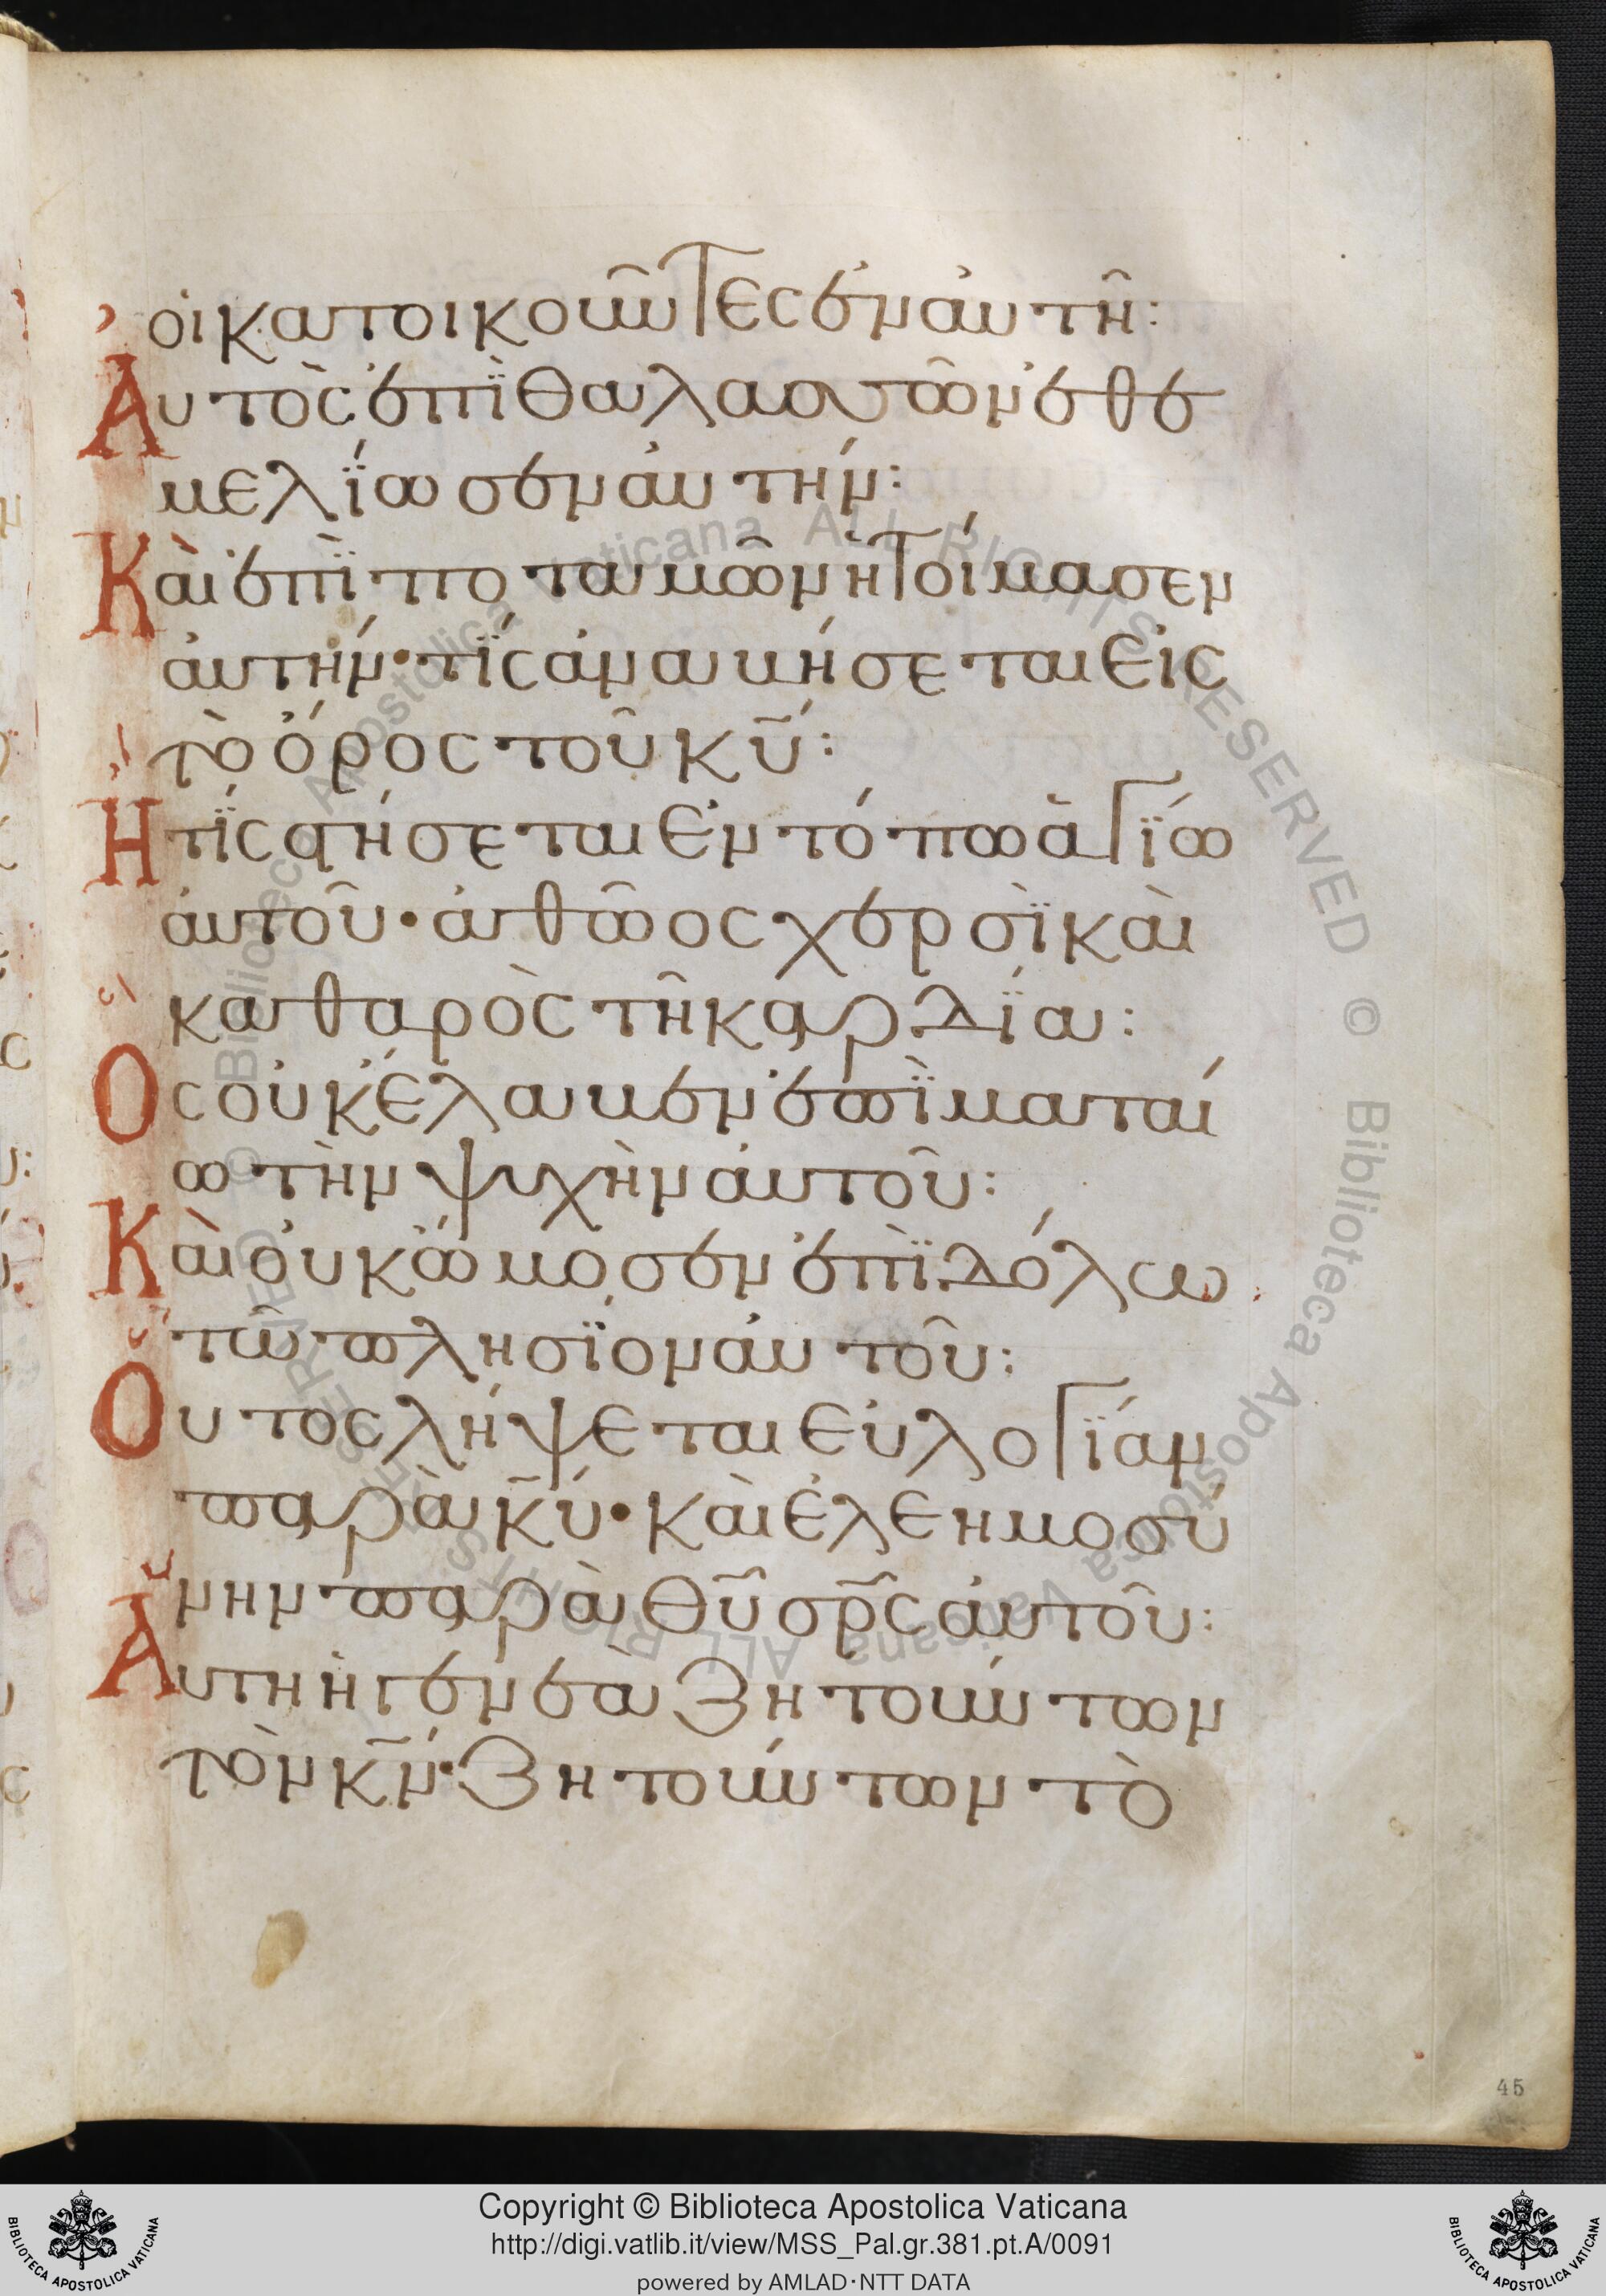 οἱ κατοικοῦντες ἐν αὐτῆ:
Αὐτὸς ἐπῒ θαλασσῶν ἐθε
μελΐωσεν αὐτήν:
Καὶ ἐπῒ ποταμῶν ἡτοίμασεν
αὐτήν· τΐς ἀναβήσεται εἰς
τὸ ὄρος τοῦ κ̅υ̅:
Ἢ τΐς στήσεται ἐν τόπω ἁγΐω
αὐτοῦ· ἀθῶος χερσῒ καὶ
καθαρὸς τῆ καρδΐα:
Ὃς οὐκ ἔλαβεν ἐπῒ ματαί
ω τὴν ψυχὴν αὐτοῦ:
Καὶ οὐκ ὤμοσεν ἐπῒ δόλω
τῶ πλησϊον αὐτοῦ:
Οὗτος λήψεται εὐλογΐαν
παρὰ κ̅υ̅· καὶ ἐλεημοσύ
νην παρὰ θ̅υ̅ σ̅ρ̅ς̅ αὐτοῦ:
Αὕτη ἡ γενεὰ ζητούντων
τὸν κ̅ν̅· ζητούντων τὸ
45
© Biblioteca Apostolica Vaticana ALL RIGHTS RESERVED © Biblioteca Apostolica Vaticana ALL RIGHTS RESERVED
BIBLIOTECA APOSTOLICA VATICANA
Copyright © Biblioteca Apostolica Vaticana
http://digi.vatlib.it/view/MSS_Pal.gr.381.pt.A/0091
powered by AMLAD·NTT DATA
BIBLIOTECA APOSTOLICA VATICANA